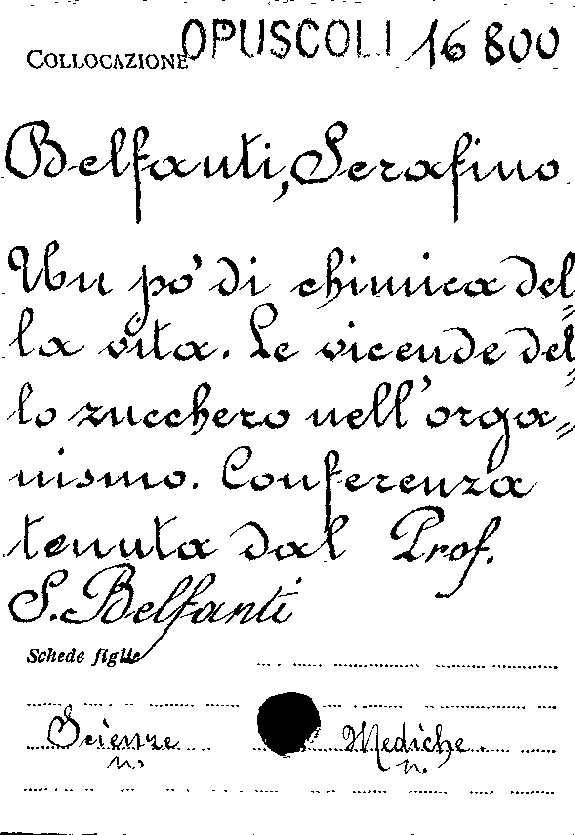 COLLOCAZIONE OPUSCOLI 16 800
Belfanti, Serafino
Un pò di chimica del=
la vita. Le vicende del=
lo zucchero nell'orga=
nismo. Conferenza
tenuta dal Prof.
S. Belfanti
Schede figlie
Scienze Mediche.
n. n.